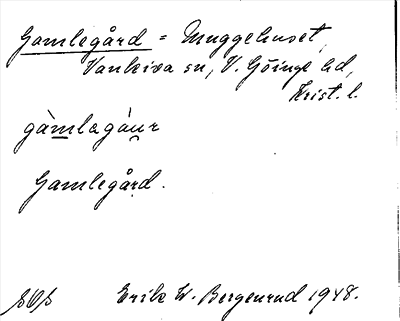 Gamlegård = Muggehuset,
Vankiva sn, V. Göinge hd,
Krist. l.
gàmlægáur
Gamlegård.
Erik W. Bergenrud 1948.